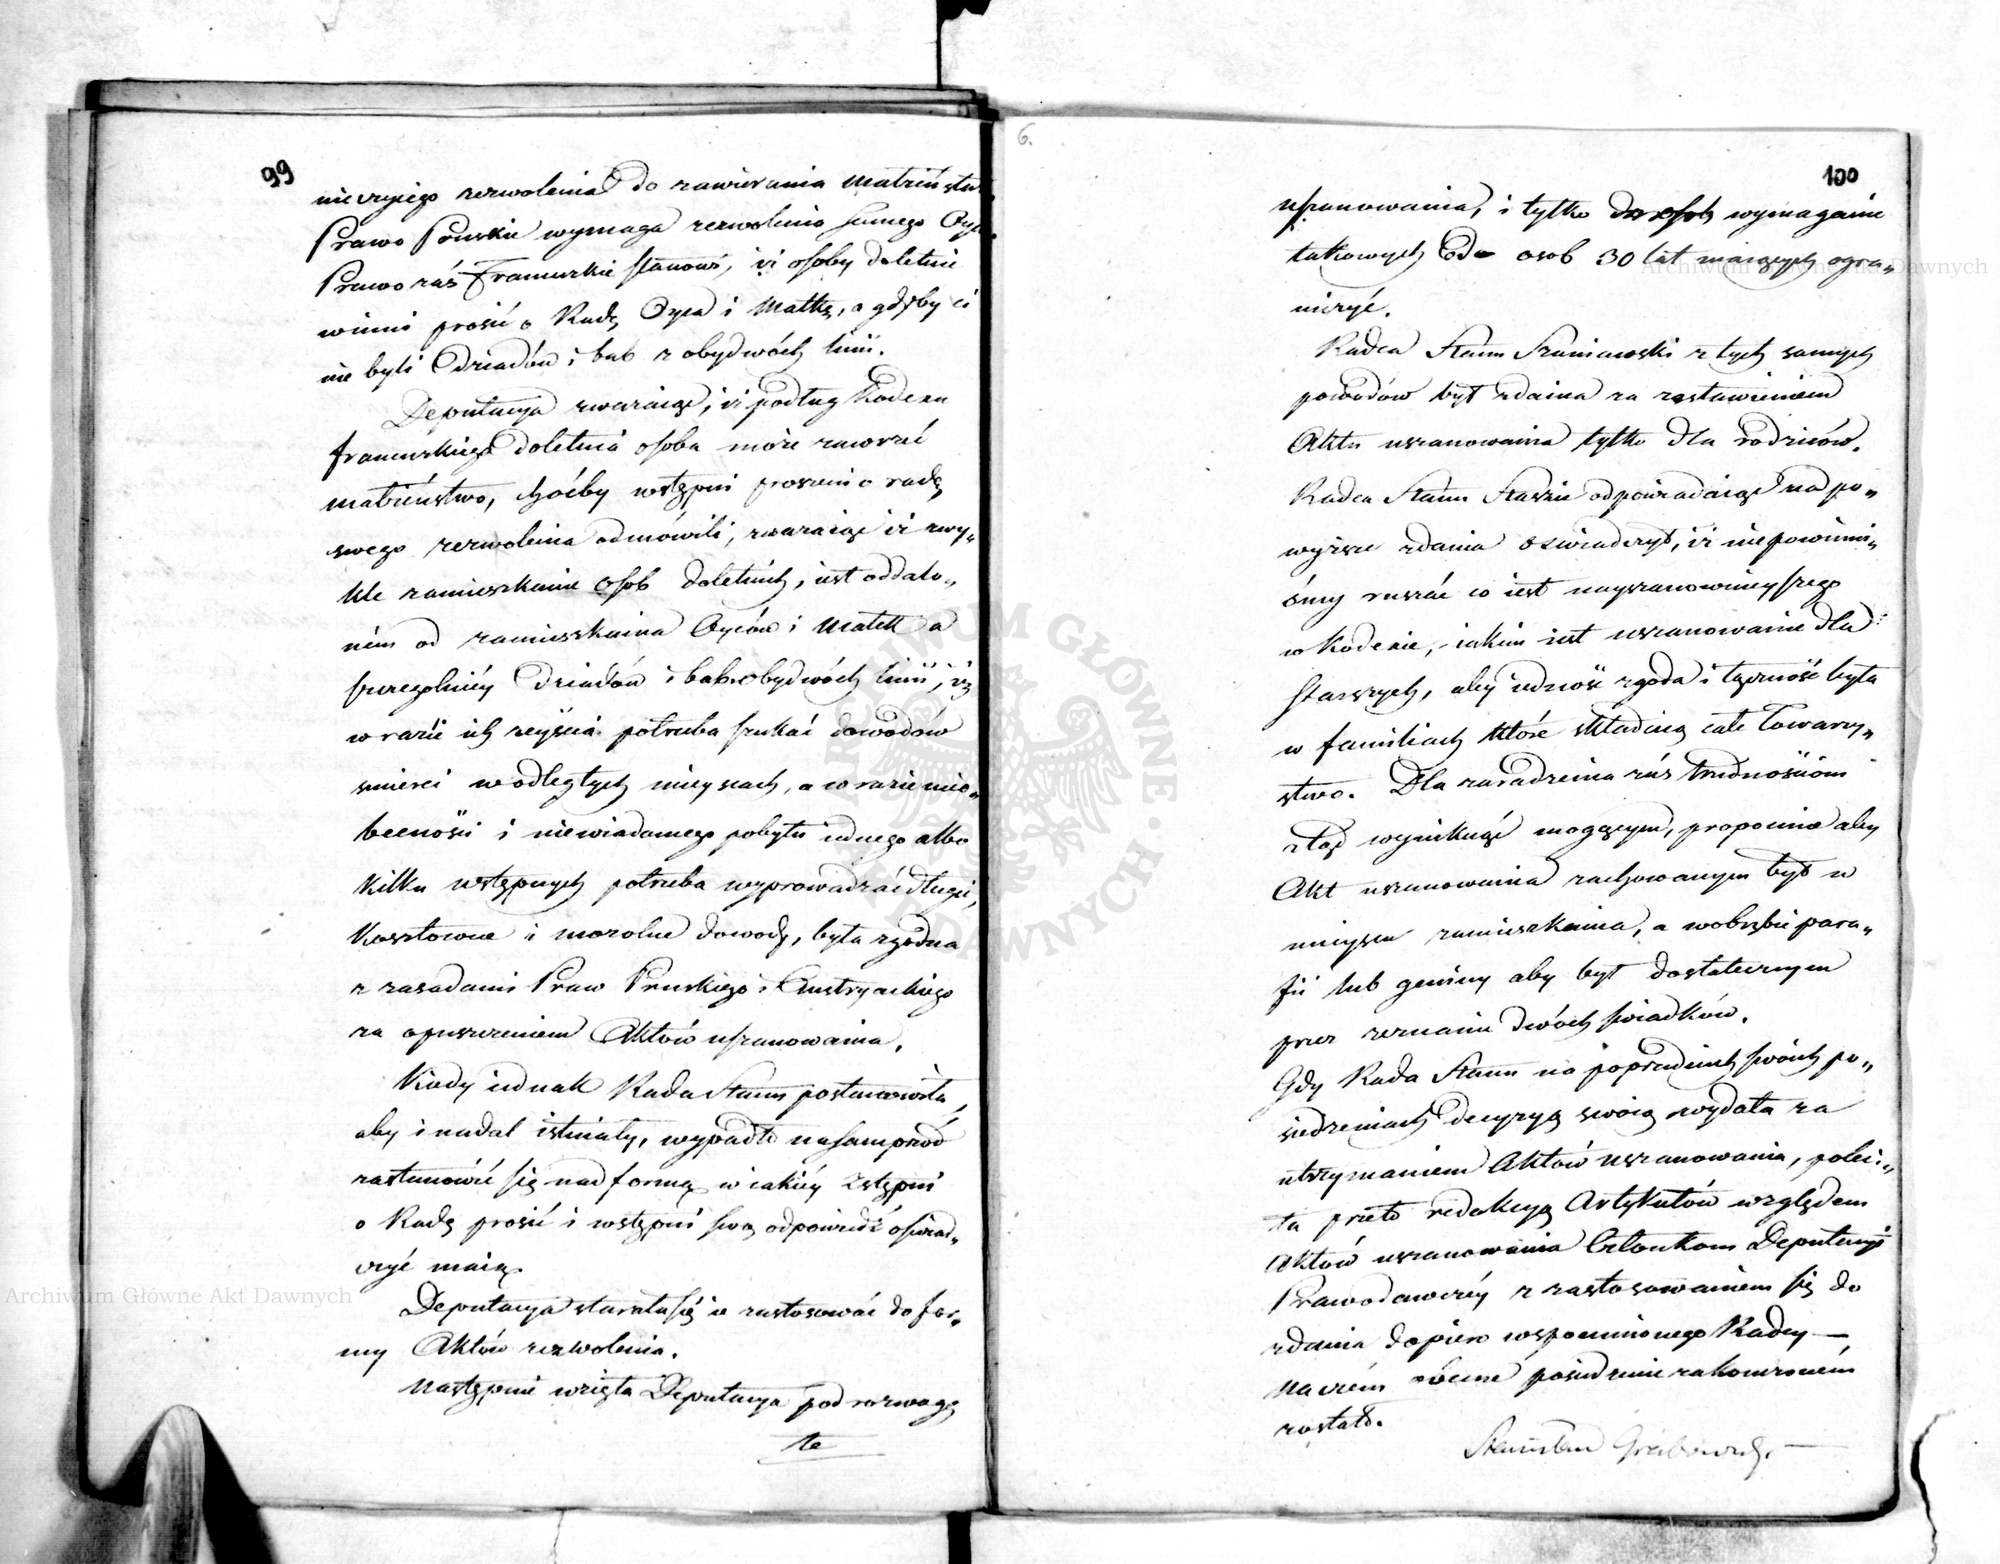 99
niczyiego zezwolenia do zawierania Małżeństw
Prawo Pruskie wymaga zezwolenia samego Oyca
Prawo záś Francuzkie stanowi, iż osoby doletnie
winni prosić o Radę Oyca i Matkę, a gdyby ci
nie byli Dziadów i bab z obydwóch linii.
Deputacya zważaiąc, iż podług Kodexu
francuzkiego doletnia osoba może zawrzeć
małżeństwo, choćby wstępni proszeni o radę
swego zezwolenia odmówili, zważaiąc iż zwy„
kle zamieszkanie osob doletnich, iest oddalo„
ném od zamieszkania Oyców i Matek a
szczególniéy Dziadów i bab obydwóch linii, iż
w razie ich zeyścia potrzeba szukać dowodów
smierci w odległych mieyscach, a w razie nieo„
becności i niewiadomego pobytu iednego albo
kilku wstępnych potrzeba wyprowadzać długie,
kosztowne i mozolne dowody, była zgodna
z zasadami Praw Pruskiego i Austryackiego
za opuszczeniem Aktów uszanowania.
Kiedy iednak Rada Stanu postanowiła,
aby i nadal istniały, wypadło nasamprzód
zastanowić się nad formą w iakiéy Zstępni
o Radę prosić i wstępni swą odpowiedź oświad„
czyć maią.
Deputacya starała się ie zastosować do for„
my Aktów zezwolenia.
Następnie wzięła Deputacya pod rozwagę
te
6.
100
uszanowania, i tylko do osob wymaganie
takowych do osob 30 lat maiących ogra„
niczyć.
Radca Stanu Szaniawski z tych samych
powodów był zdania za zostawieniem
Aktu uszanowania tylko dla rodziców.
Radca Stanu Staszic odpowiadaiąc na po„
wyższe zdania oświadczył, iż niepowinni„
śmy ruszać co iest nayszanownieyszego
w Kodexie, iakim iest uszanowanie dla
starszych, aby iedność zgoda i łączność była
w familiach które składaią całe Towarzy„
stwo. Dla zaradzenia záś trudnościom
ztąd wyniknąć mogącym, proponuie aby
Akt uszanowania zachowanym był w
mieyscu zamieszkania, a w obrębie para„
fii lub gminy aby był dostatecznym
przez zeznanie dwóch świadków.
Gdy Rada Stanu na poprzednich swóich po„
siedzeniach decyzyą swoią wydała za
utrzymaniem Aktów uszanowania, poleci„
ła przeto redakcyą Artykułów względem
Aktów uszanowania Członkom Deputacyi
Prawodawczéy z zastosowaniem się do
zdania dopiero wspomnionego Radcy —
Na czém obecne posiedzenie zakończoném
zostało.
Stanisław Grabowski
Archiwum Główne Akt Dawnych
Archiwum Główne Akt Dawnych
ARCHIWUM GŁÓWNE AKT DAWNYCH